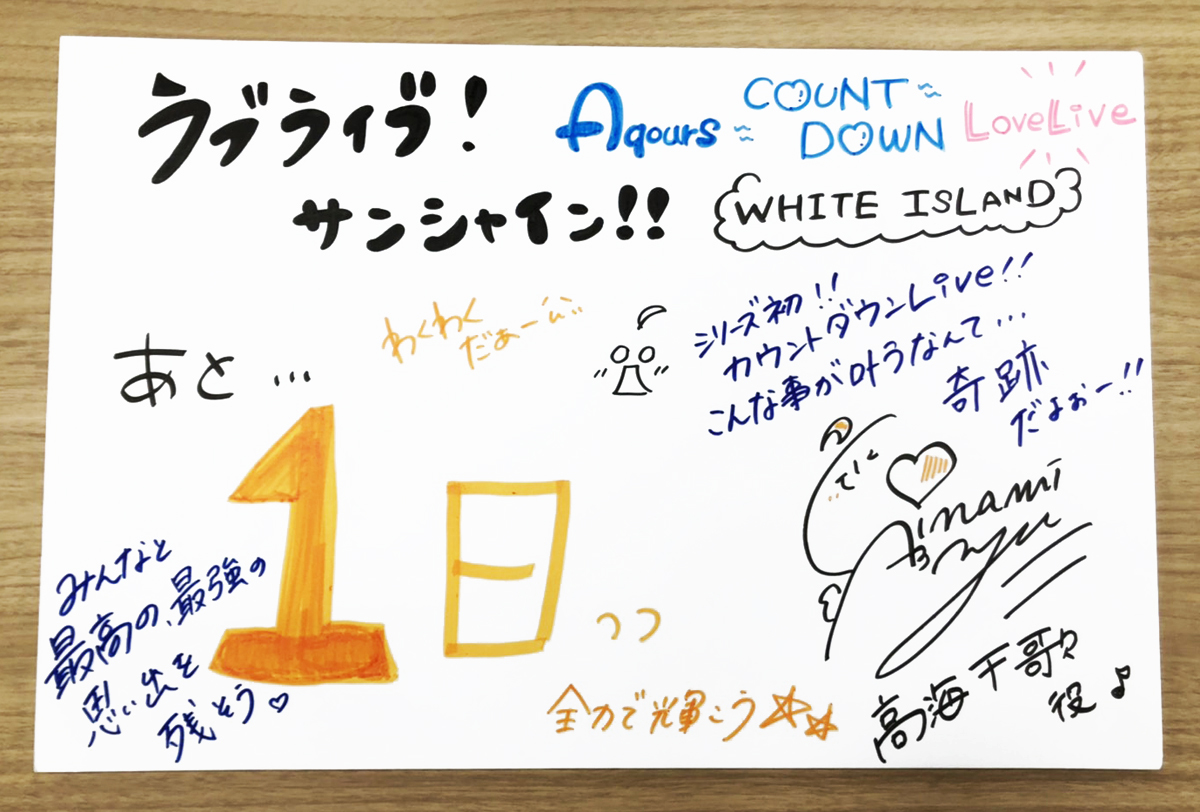 ラブライブ!
サンシャイン!!
Aqours
COUNT
DOWN
LoveLive
WHITE ISLAND
あと...
わくわく
だぁー
シリーズ初!!
カウントダウンLive!!
こんな事が叶うなんて...
奇跡
だよぉー!!
1日っっ
みんなと
最高の、最強の
思い出を
残そう♡
全力で輝こう☆☆
高海千歌
役♪